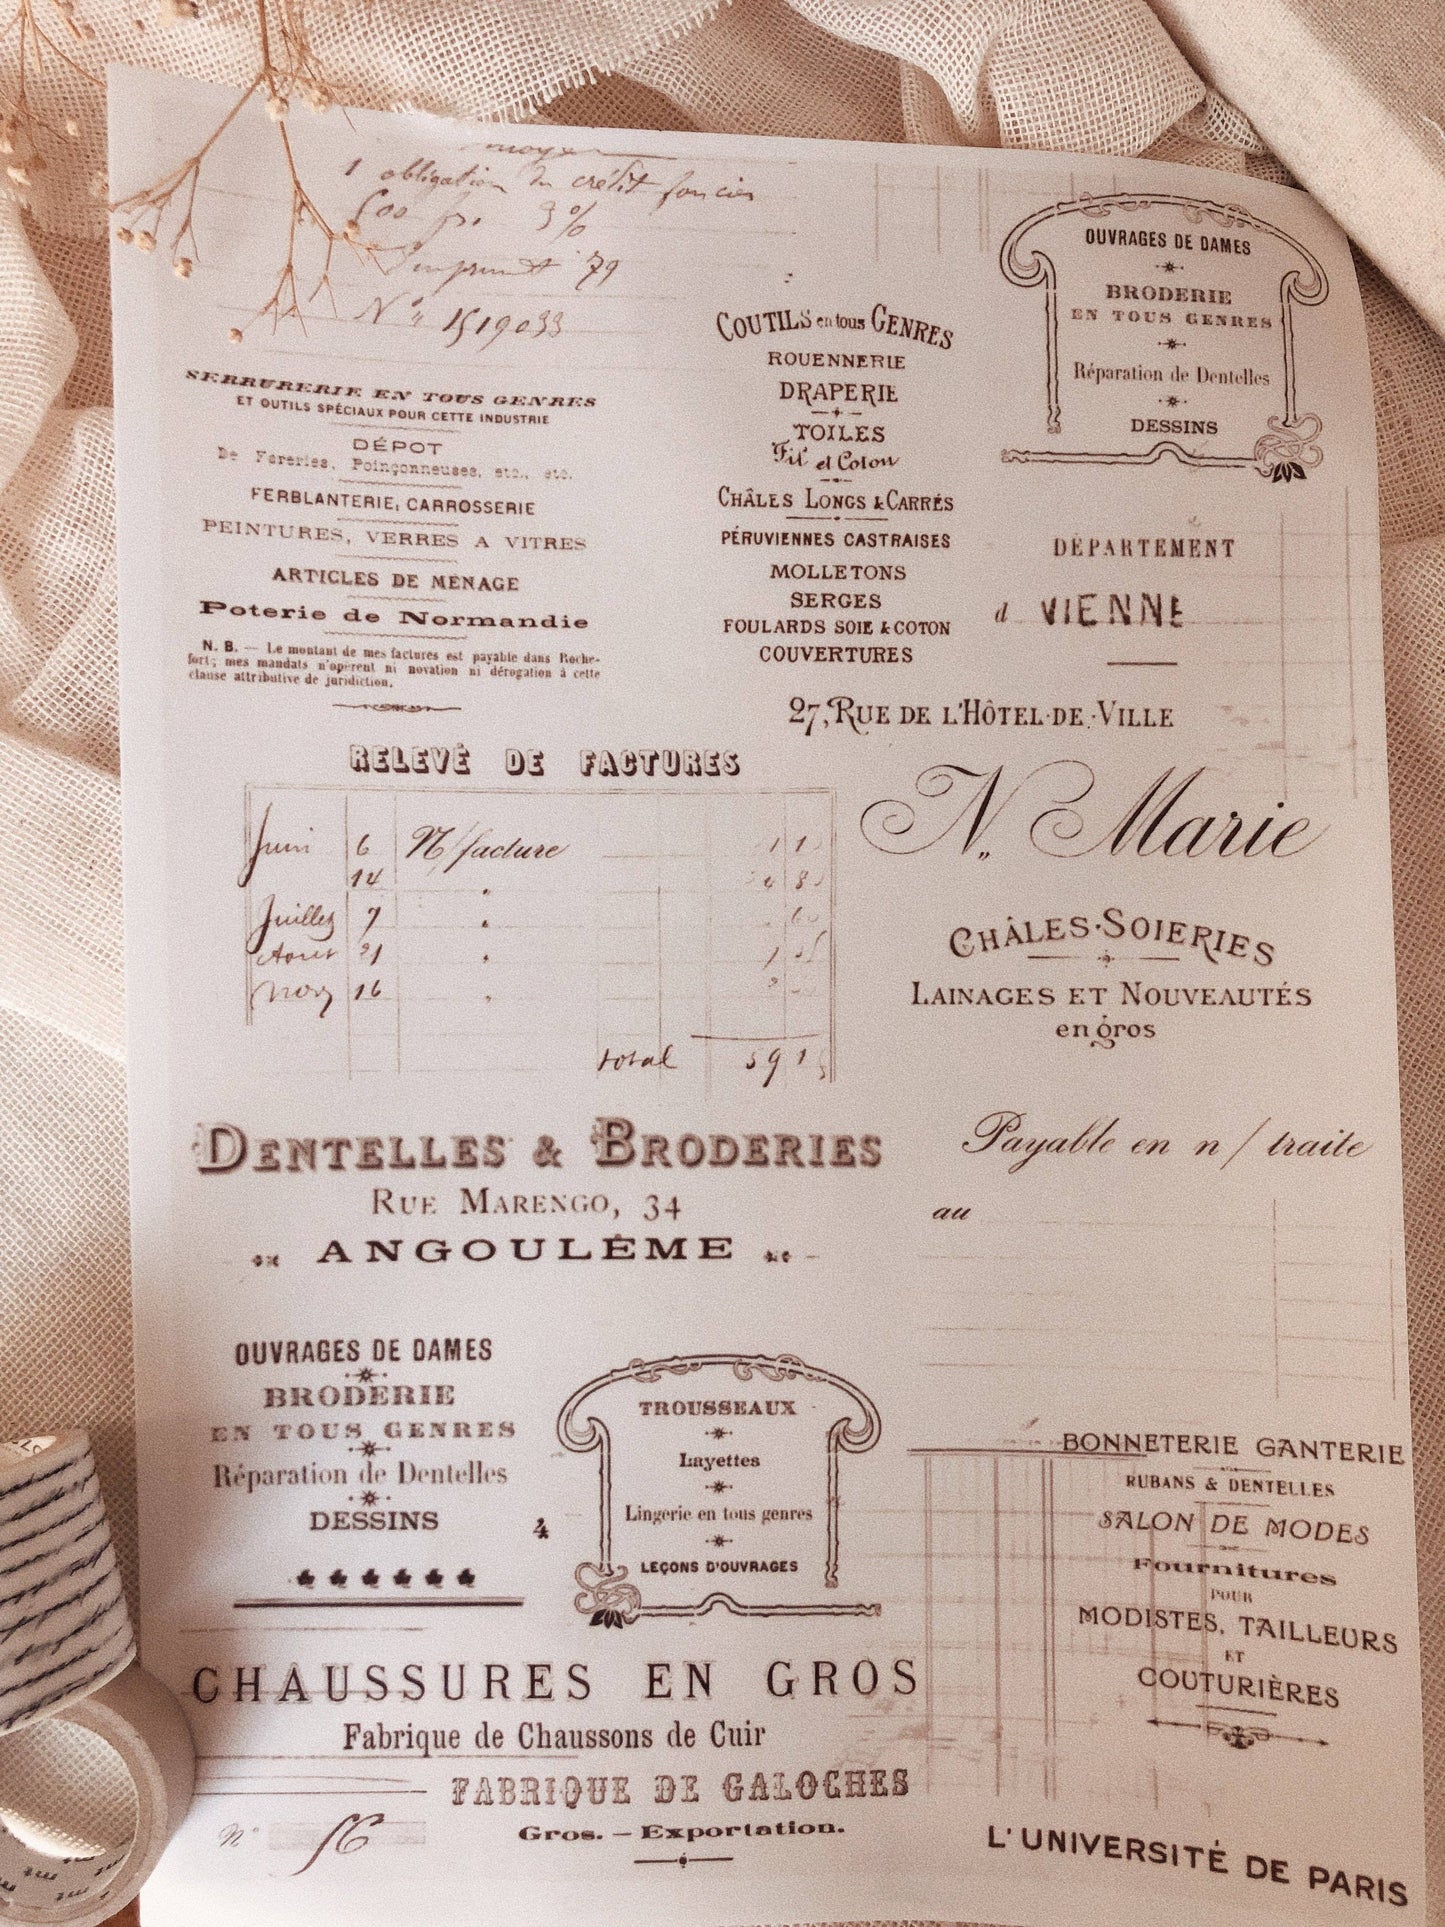 1 obligation du crédit foncier
500 fr. 3%
Emprunt 79
N° 1519033
SERRURERIE EN TOUS GENRES
ET OUTILS SPÉCIAUX POUR CETTE INDUSTRIE
DÉPOT
De Fereries, Poinçonneuses, etc., etc.
FERBLANTERIE, CARROSSERIE
PEINTURES, VERRES A VITRES
ARTICLES DE MÉNAGE
Poterie de Normandie
N. B. — Le montant de mes factures est payable dans Roche-
fort; mes mandats n'opèrent ni novation ni dérogation à cette
clause attributive de juridiction.
COUTILS en tous GENRES
ROUENNERIE
DRAPERIE
TOILES
Fil et Coton
CHÂLES LONGS & CARRÉS
PÉRUVIENNES CASTRAISES
MOLLETONS
SERGES
FOULARDS SOIE & COTON
COUVERTURES
OUVRAGES DE DAMES
BRODERIE
EN TOUS GENRES
Réparation de Dentelles
DESSINS
DÉPARTEMENT
d VIENNE
27, RUE DE L'HÔTEL-DE-VILLE
RELEVÉ DE FACTURES
Juin 6 N/facture
14 "
Juillet 7 "
Août 21 "
Nov 16 "
total
N. Marie
CHÂLES-SOIERIES
LAINAGES ET NOUVEAUTÉS
en gros
DENTELLES & BRODERIES
RUE MARENGO, 34
ANGOULÊME
Payable en n/ traite
au
OUVRAGES DE DAMES
BRODERIE
EN TOUS GENRES
Réparation de Dentelles
DESSINS
4
TROUSSEAUX
Layettes
Lingerie en tous genres
LEÇONS D'OUVRAGES
BONNETERIE GANTERIE
RUBANS & DENTELLES
SALON DE MODES
Fournitures
POUR
MODISTES, TAILLEURS
ET
COUTURIÈRES
CHAUSSURES EN GROS
Fabrique de Chaussons de Cuir
FABRIQUE DE GALOCHES
Gros. — Exportation.
N° 56
L'UNIVERSITÉ DE PARIS